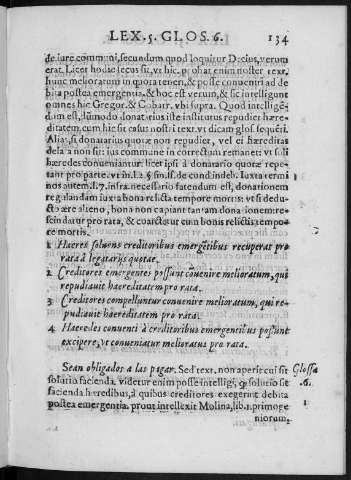 LEX. 5. GLOS. 6. 134
de iure communi, secundum quod loquitur Decius, verum
erat. Licet hodie secus sit, vt hic. probat enim noster text.
hunc melioratum in quota teneri, & posse conueniri ad de
bita postea emergentia. & hoc est verum, & sic intelligunt
omnes hic Gregor. & Couarr. vbi supra. Quod intelligē-
dum est, dūmodo donatarius iste institutus repudiet hære-
ditatem, cum hic sit casus nostri text. vt dicam glos. sequēti.
Aliàs, si donatarius quotæ non repudiet, vel ei hæreditas
delata non sit: ius commune in correctum remanet: vt si
hæredes conueniantur: licet ipsi à donatario quotæ repe-
tant pro parte. vt in l. 2 § sin. ff. de cond. indeb. Iuxta termi
nos autem. l. 7. infra. necessario fatendum est, donationem
regulandam iuxta bona relicta tempore mortis: vt si dedu-
cto ære alieno, bona non capiant tantam donationem: re-
scindatur pro rata, & coarctetur cum bonis relictis tempo-
re mortis.
1 Hæres soluens creditoribus emergētibus recuperat pro
rata à legatarijs quotæ.
2 Creditores emergentes possunt cōuenire melioratum, qui
repudiauit hæreditatem pro rata.
3 Creditores compelluntur conuenire melioratum, qui re-
pudiauit hæreditatem pro rata.
4 Hæredes conuenti à creditoribus emergentibus possunt
excipere, vt conueniatur melioratus pro rata.
Sean obligados a las pagar. Sed text. non aperit cui sit Glossa
solutio facienda. videtur enim posse intelligi, q solutio sit 6.
facienda hæredibus, à quibus creditores exegerint debita 1
postea emergentia. prout intellexit Molina, lib. 1. primoge
niorum,